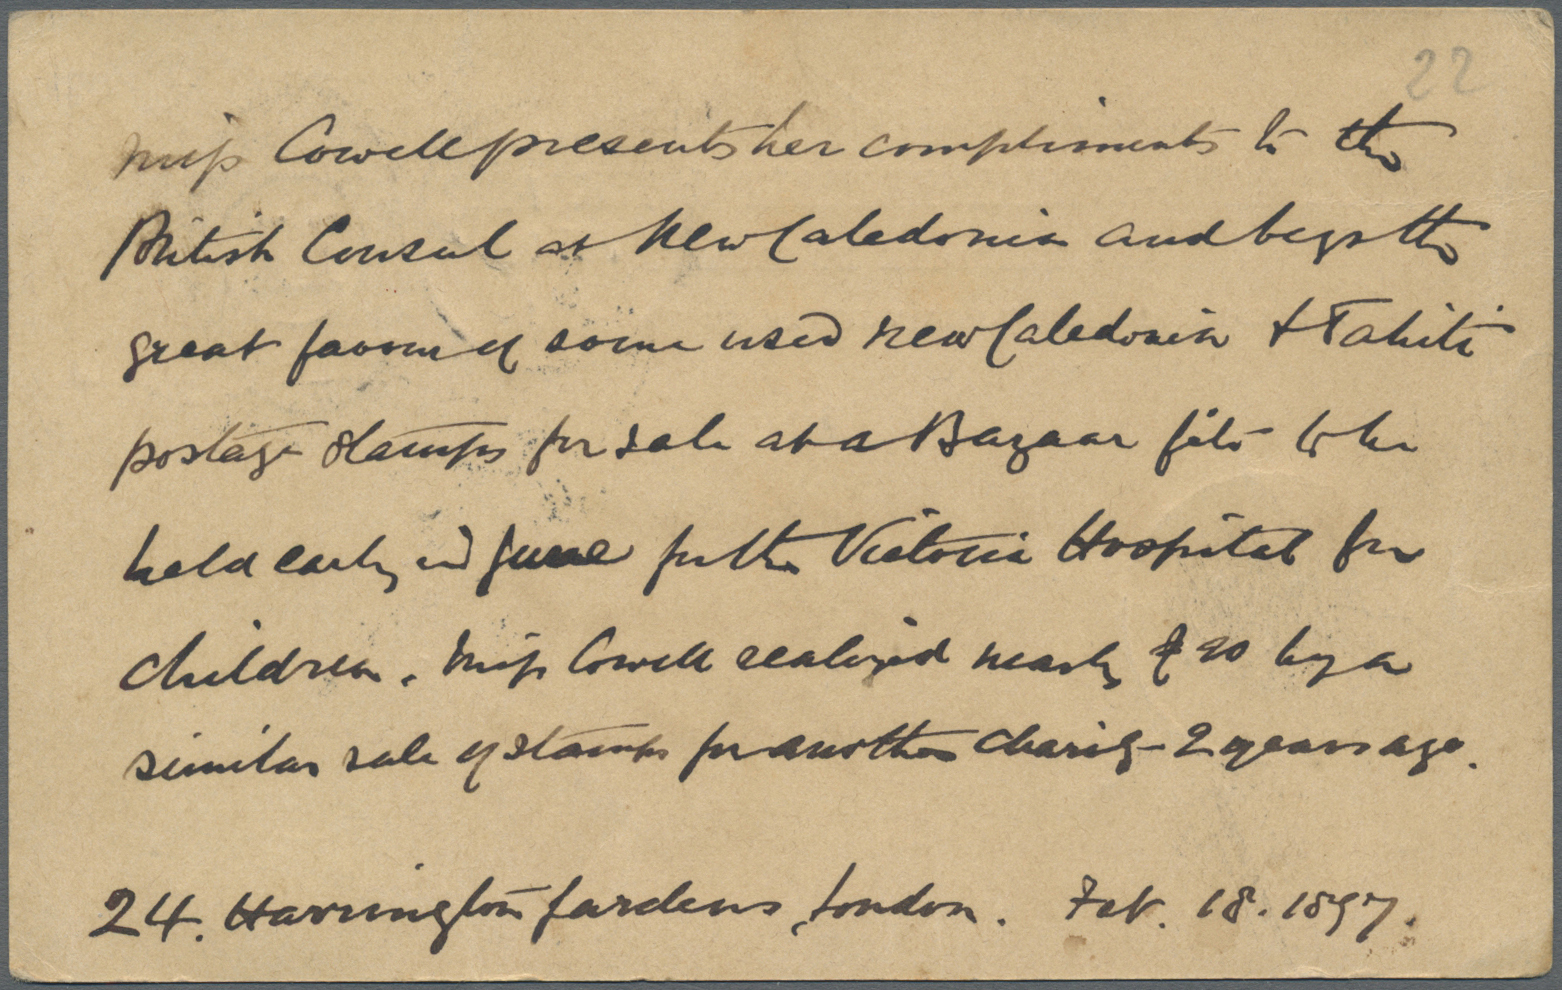 22
Miss Cowell presents her compliments to the
British Consul at New Caledonia and begs the
great favour of some used New Caledonia & Tahiti
postage stamps for sale at a Bazaar fête to be
held early in June for the Victoria Hospital for
children. Miss Cowell realized nearly £90 by a
similar sale of stamps for another charity 2 years ago.
24. Harrington Gardens, London. Feb. 18. 1897.